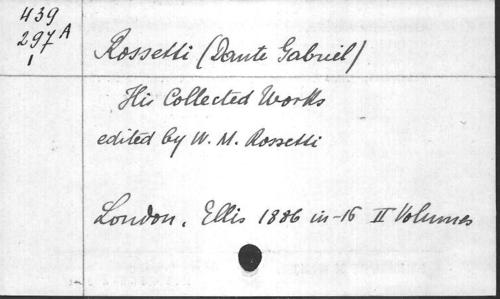 439
297 A
1
Rossetti (Dante Gabriel)
His Collected Works
edited by W. M. Rossetti
London. Ellis 1886 in-16 II Volumes